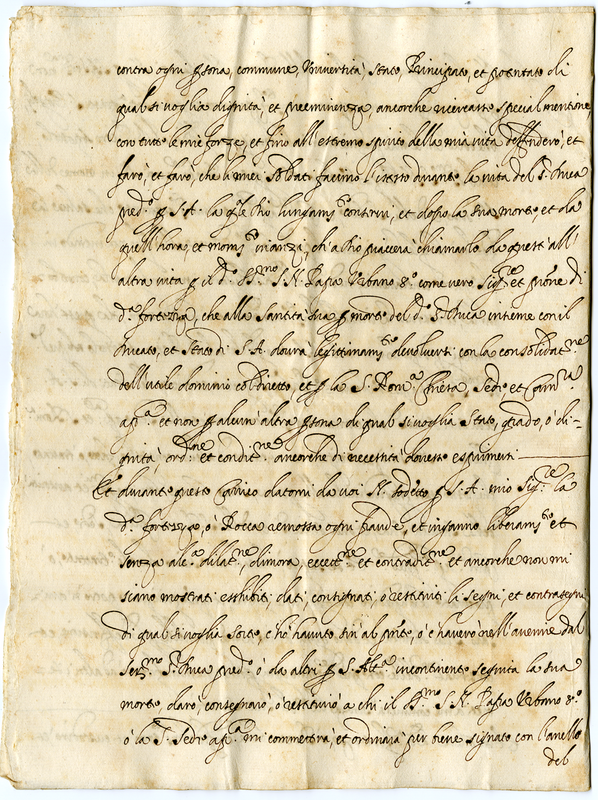 contra ogni p̱sona, commune, Università, Stato, Principato, et potentato di
qual si voglia dignità, et preeminenza, ancorche ricercasse special mentione,
con tutte le mie forze, et fino all'estremo spirito della mia vita deffenderò, et
farò, et farò, che li miei Soldati faccino l'istesso durante la vita del S.r Duca
pred.o p̱ S. A. la q̱le Dio lungam.te conservi, et dopo la sua morte, et da
quell'hora, et mom.to inanzi, ch'a Dio piacerà chiamarlo da questa all'
altra vita p̱ il d.o S.mo N. S. Papa Urbano 8.o come vero Sig.re et p̱rone di
d.a fortezza, che alla Santità sua p̱ morte del d.o S.r Duca insieme con il
Ducato, et Stato di S. A. dovrà legittimam.te devolversi con la consolidat.ne
dell'utile dominio col diretto, et p̱ la S. Rom.a Chiesa, Sede et Cam.ra
ap.ca et non p̱ alcun'altra p̱sona di qual si voglia Stato, grado, ò di-
gnità, ord.ne et condit.ne ancorche di necessità dovesse esprimersi
Et durante questo carrico datomi da voi N. sodetto p̱ S. A. mio Sig.re la
d.a fortezza, ò Rocca remossa ogni fraude, et inganno liberam.te et
senza alc.a dilat.ne, dimora, eccett.ne et contradit.ne et ancorche non mi
siano mostrati essibiti dati, consignati, ò restituiti li segni, et contrasegni
di qual si voglia sorte, c'hò havuto sin'al p̱nte, ò c'haverò nell'avenire dal
Ser.mo S.r Duca pred.o ò da altri p̱ S. Alt.a incontinente seguita la sua
morte, darò, consegnarò, ò restituirò a chi il S.mo N. S. Papa Urbano 8.o
ò la S. Sede ap.ca mi commetterà, et ordinarà per breve signato con l'anello
del